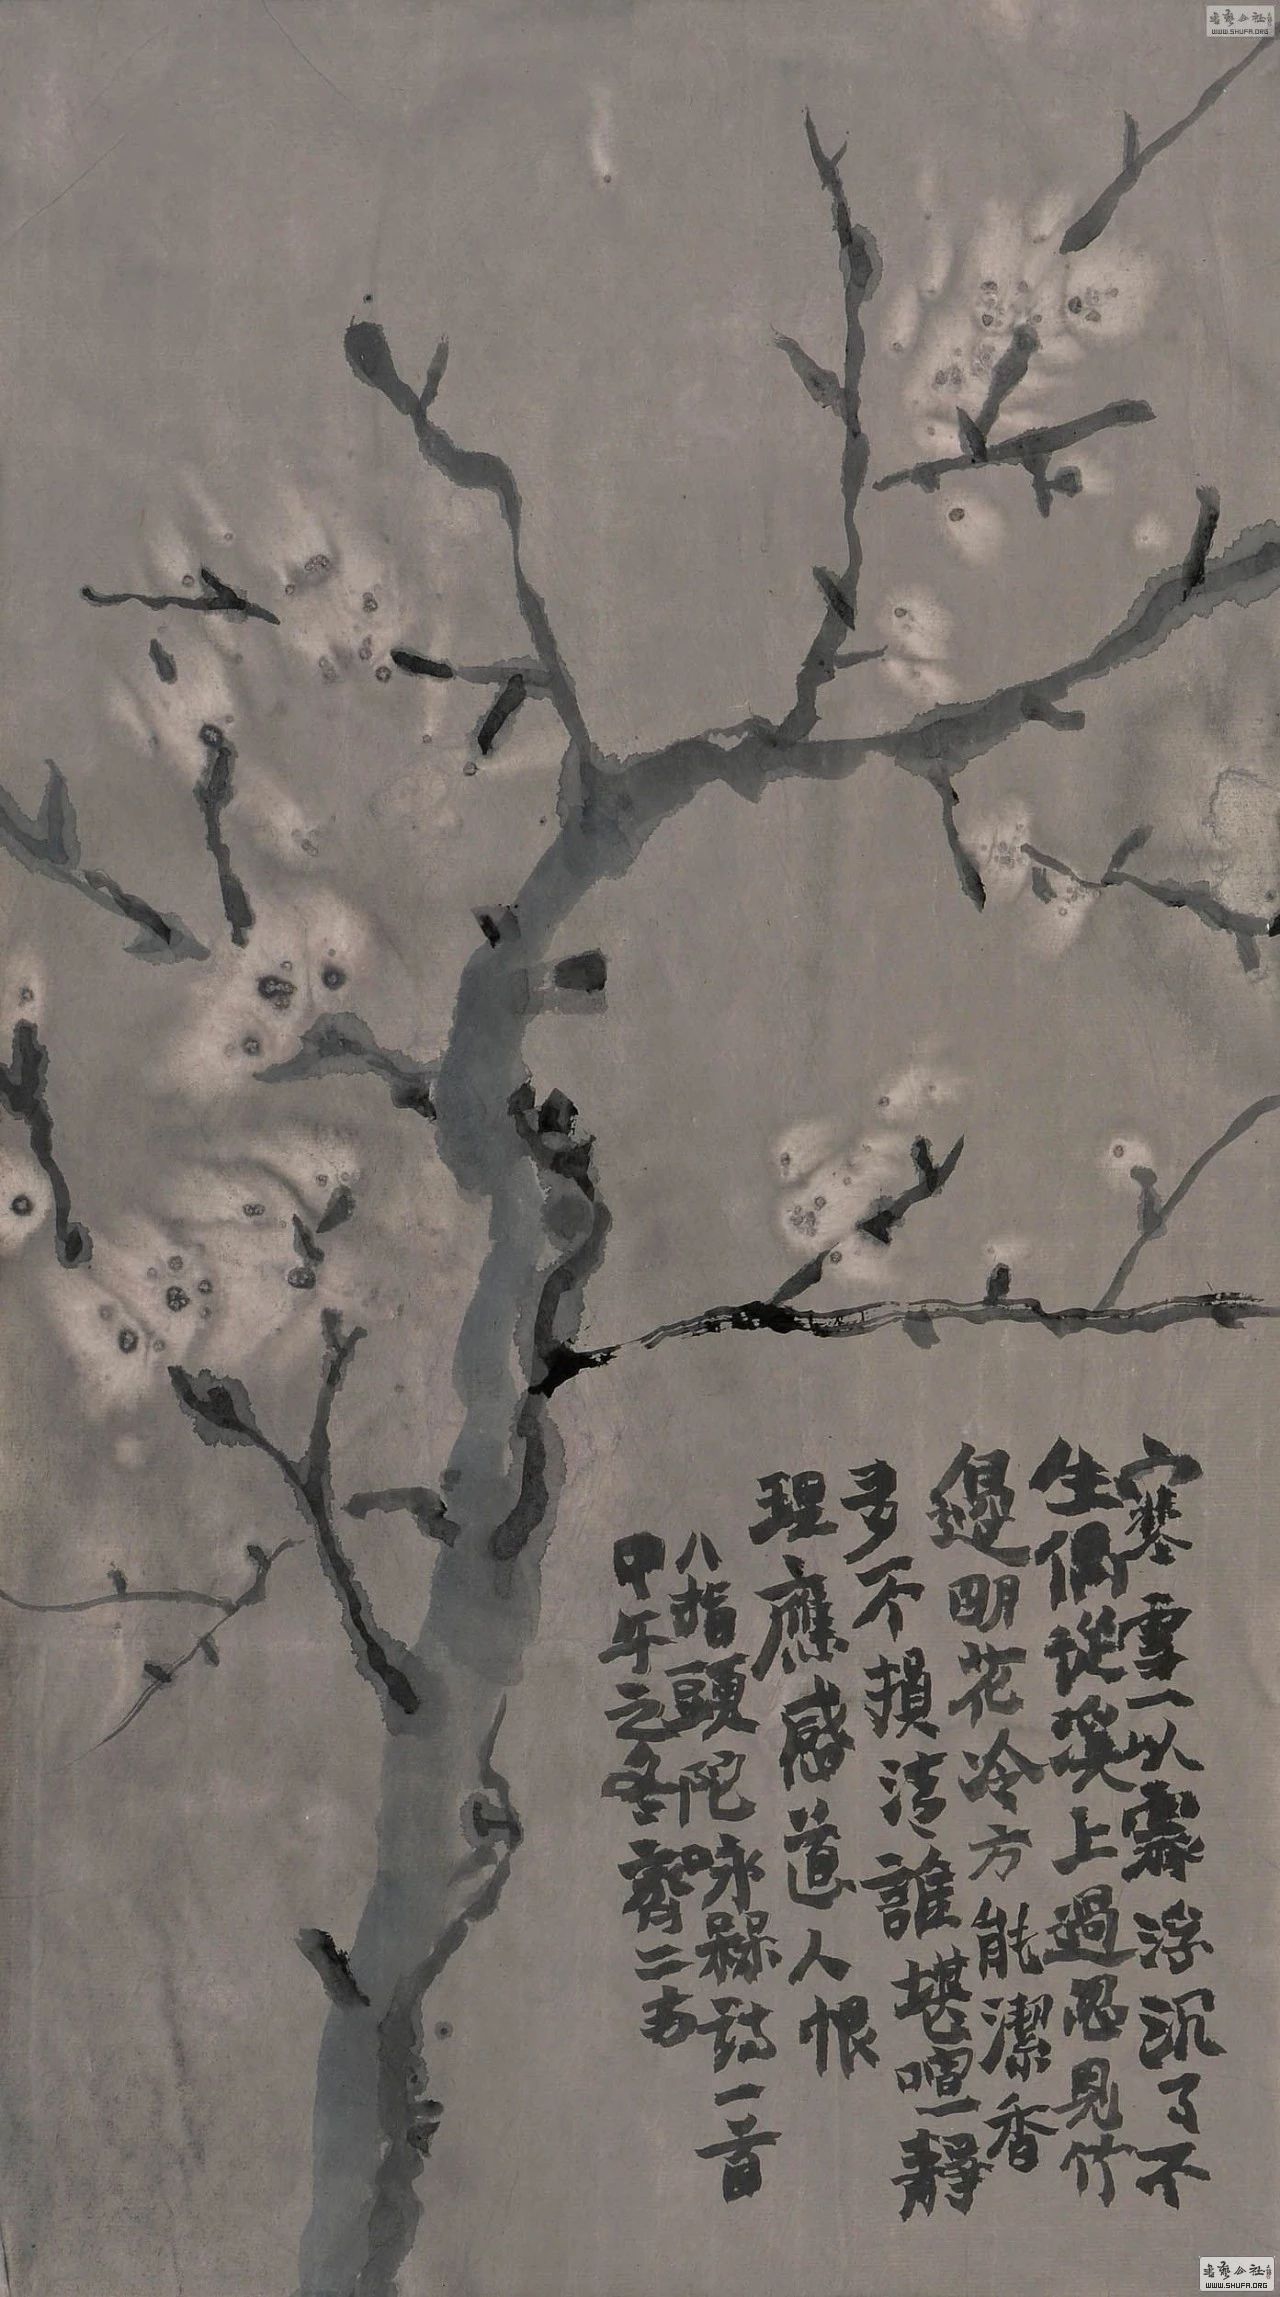 寒雪一以霽浮沉了不
生偶從溪上過忽見竹
邊明花冷方能潔香
多不損清誰堪喧一靜
理應感道人恨
八指頭陀咏槑詩一首
甲午之冬齊二
書艺公社
WWW.SHUFA.ORG
書艺公社
WWW.SHUFA.ORG